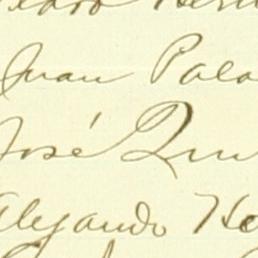 Juan Pala
José Qui
Alejando He